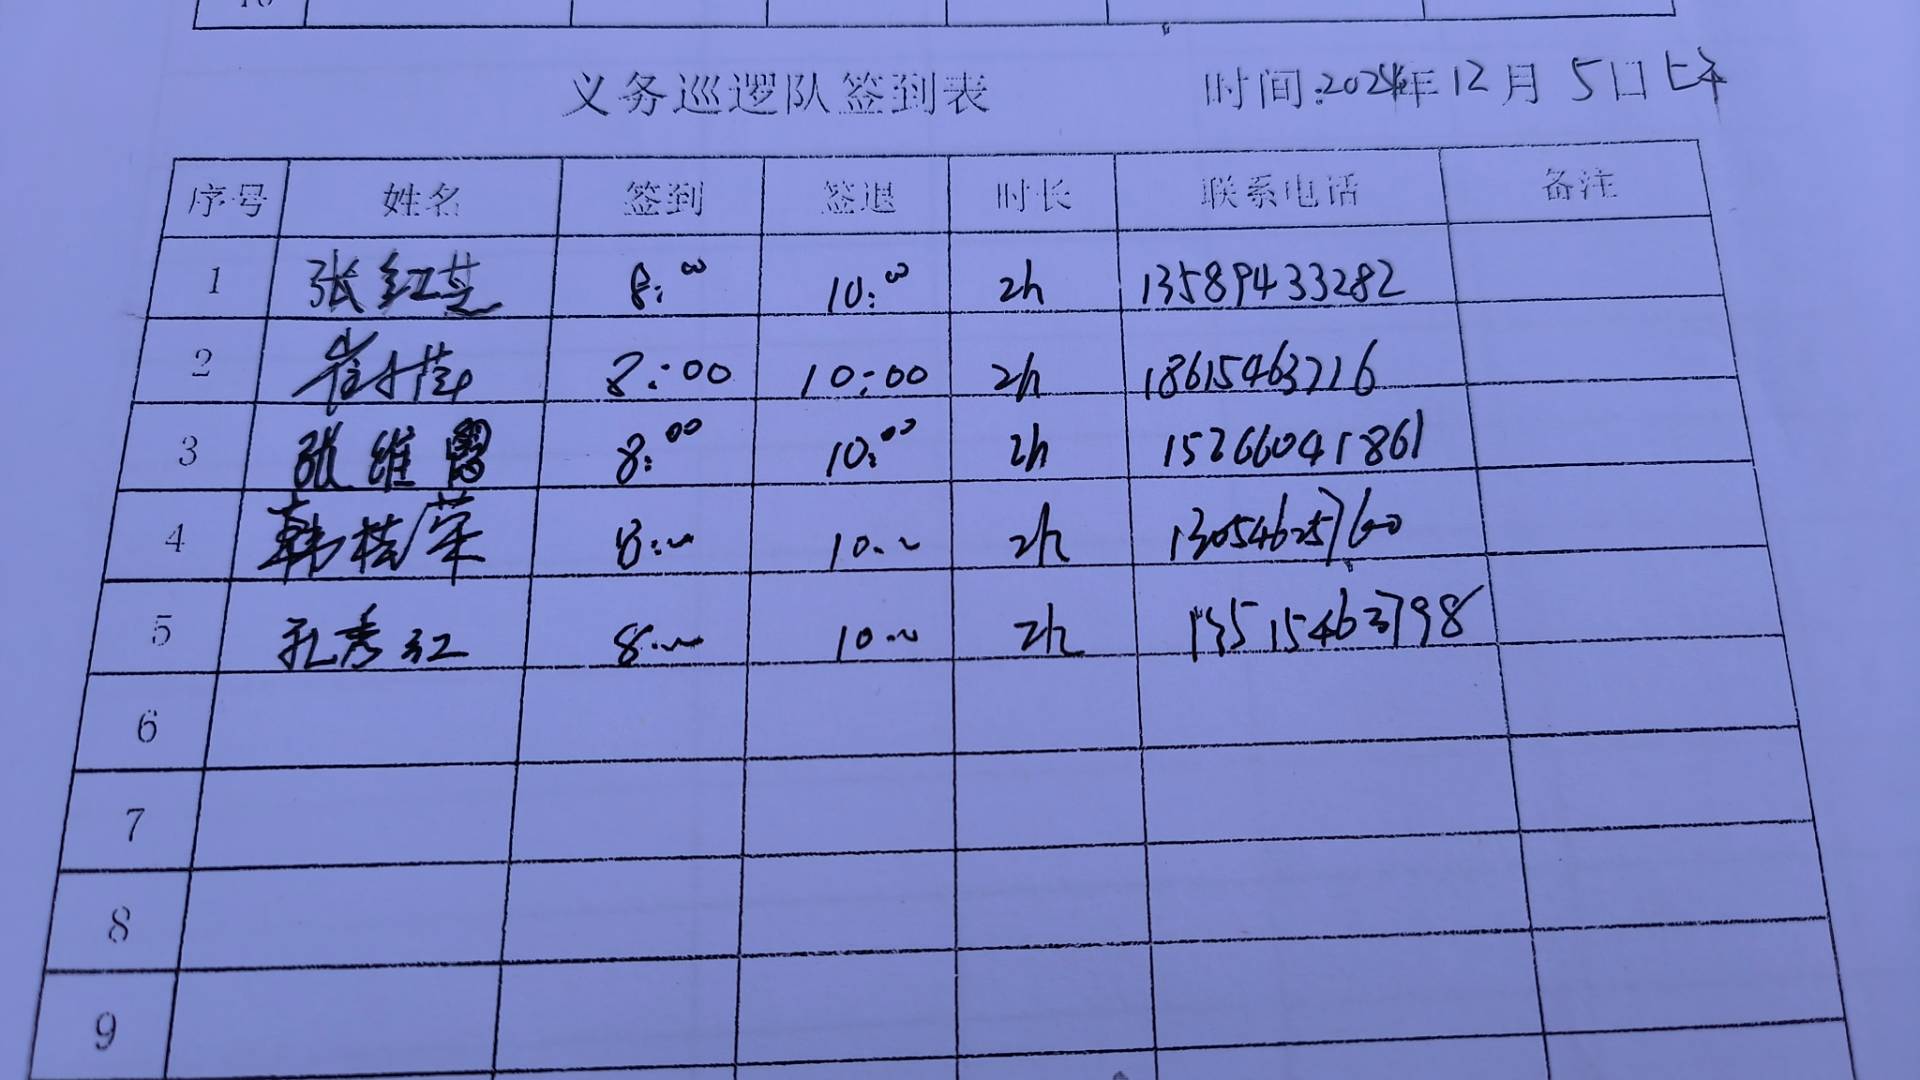 10
义务巡逻队签到表 时间:2024年12月5日上午
序号 姓名 签到 签退 时长 联系电话 备注
1 张红芝 8:00 10:00 2h 13589433282
2 8:00 10:00 2h 18615463216
3 张维 8:00 10:00 2h 15266041861
4 韩桂荣 8:00 10:00 2h 13054625760
5 孔秀红 8:00 10:00 2h 13515463798
6
7
8
9